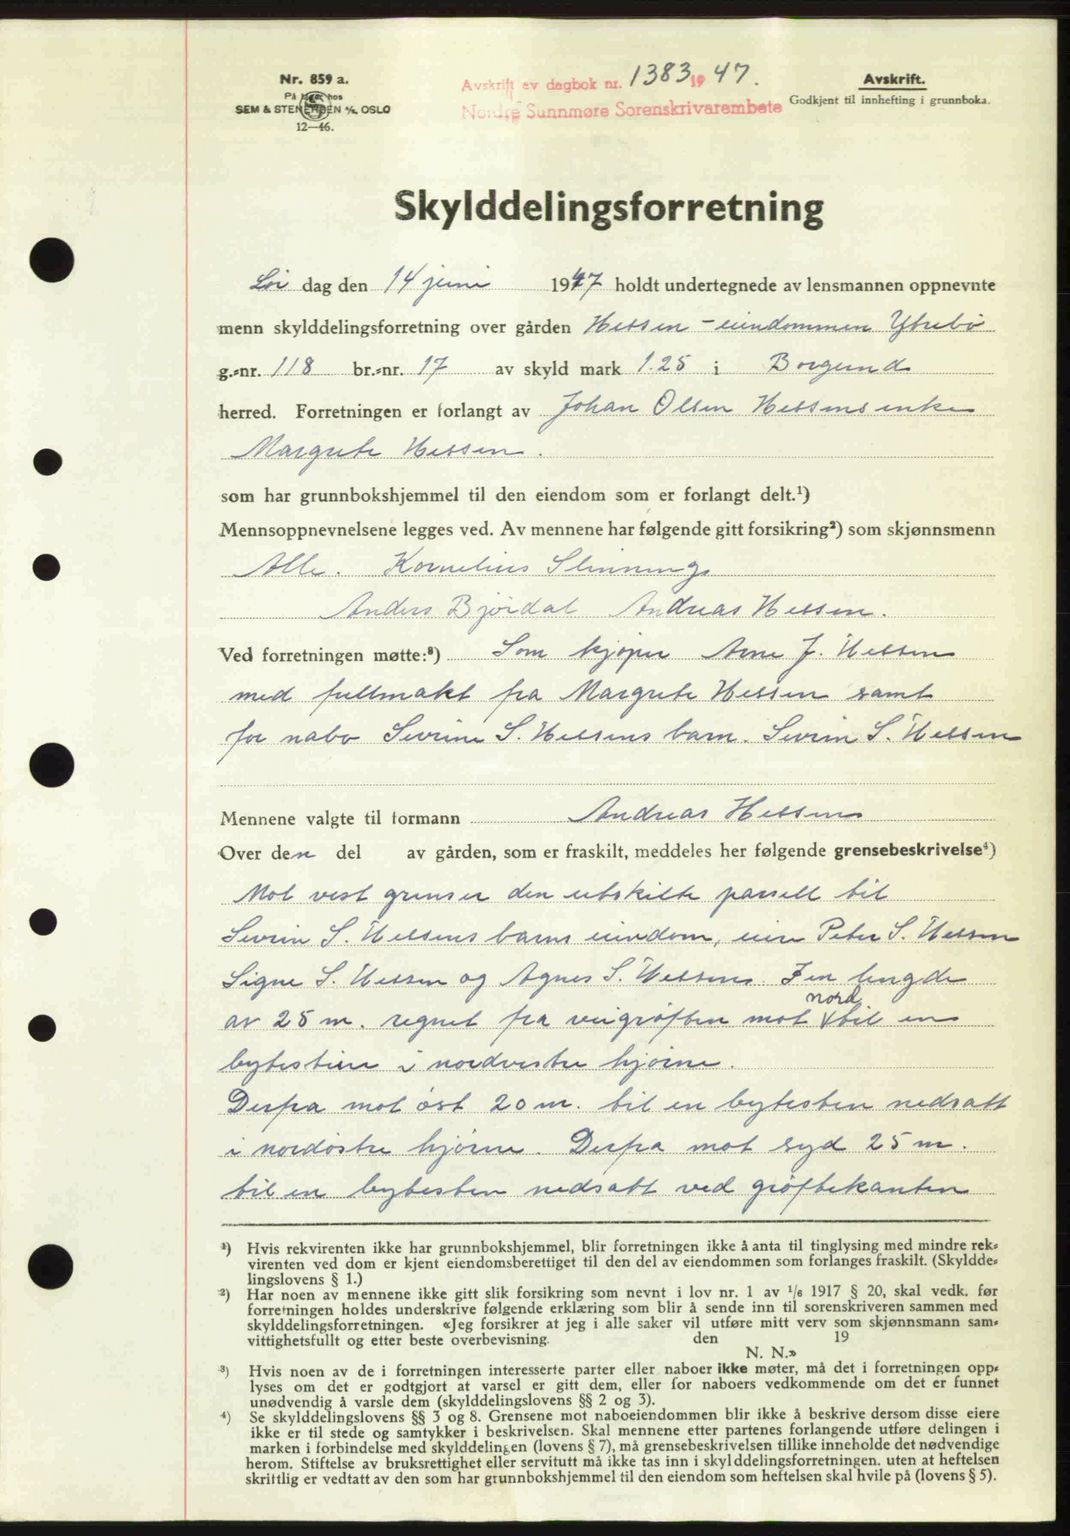 Nr. 859 a.
På lager hos
SEM & STENERSEN A/S, OSLO
12—46.
Avskrift av dagbok nr. 1383 1947.
Nordre Sunnmøre Sorenskrivarembete
Avskrift.
Godkjent til innhefting i grunnboka.
Skylddelingsforretning
Lør dag den 14 juni 1947 holdt undertegnede av lensmannen oppnevnte
menn skylddelingsforretning over gården Hessen - eiendommen Ytrebø
g.=nr. 118 br.=nr. 17 av skyld mark 1.25 i Borgund
herred. Forretningen er forlangt av Johan Olsen Hessens enke
Margrete Hessen.
som har grunnbokshjemmel til den eiendom som er forlangt delt.¹)
Mennsoppnevnelsene legges ved. Av mennene har følgende gitt forsikring²) som skjønnsmenn
Alle. Kornelius Slinning,
Anders Bjørdal Andreas Hessen.
Ved forretningen møtte:³) Som kjøper Arne J. Hessen
med fullmakt fra Margrete Hessen samt
for nabo Sevrine S. Hessens barn. Sevrin S. Hessen
Mennene valgte til formann Andreas Hessen
Over den del av gården, som er fraskilt, meddeles her følgende grensebeskrivelse⁴)
Mot vest grenser den utskilte parsell til
Sevrin S. Hessens barns eiendom, eier Peter S. Hessen
Signe S. Hessen og Agnes S. Hessens I en lengde
av 25 m. regnet fra veigrøften mot nord til en
bytestein i nordvestre hjørne.
Derfra mot øst 20 m. til en bytesten nedsatt
i nordøstre hjørne. Derfra mot syd 25 m.
til en bytesten nedsatt ved grøftekanten
¹) Hvis rekvirenten ikke har grunnbokshjemmel, blir forretningen ikke å anta til tinglysing med mindre rek=
virenten ved dom er kjent eiendomsberettiget til den del av eiendommen som forlanges fraskilt. (Skyldde=
lingslovens § 1.)
²) Har noen av mennene ikke gitt slik forsikring som nevnt i lov nr. 1 av 1/6 1917 § 20, skal vedk. før
forretningen holdes underskrive følgende erklæring som blir å sende inn til sorenskriveren sammen med
skylddelingsforretningen. «Jeg forsikrer at jeg i alle saker vil utføre mitt verv som skjønnsmann sam=
vittighetsfullt og etter beste overbevisning. den 19
N. N.»
³) Hvis noen av de i forretningen interesserte parter eller naboer ikke møter, må det i forretningen opp=
lyses om det er godtgjort at varsel er gitt dem, eller for naboers vedkommende om det er funnet
unødvendig å varsle dem (skylddelingslovens §§ 2 og 3).
⁴) Se skylddelingslovens §§ 3 og 8. Grensene mot naboeiendommen blir ikke å beskrive dersom disse eiere
ikke er til stede og samtykker i beskrivelsen. Skal mennene etter partenes forlangende utføre delingen i
marken i forbindelse med skylddelingen (lovens § 7), må grensebeskrivelsen tillike inneholde det nødvendige
herom. Stiftelse av bruksrettighet eller servitutt må ikke tas inn i skylddelingsforretningen, uten at heftelsen
skriftlig er vedtatt av den som har grunnbokshjemmel til den eiendom som heftelsen skal hvile på (lovens § 5).